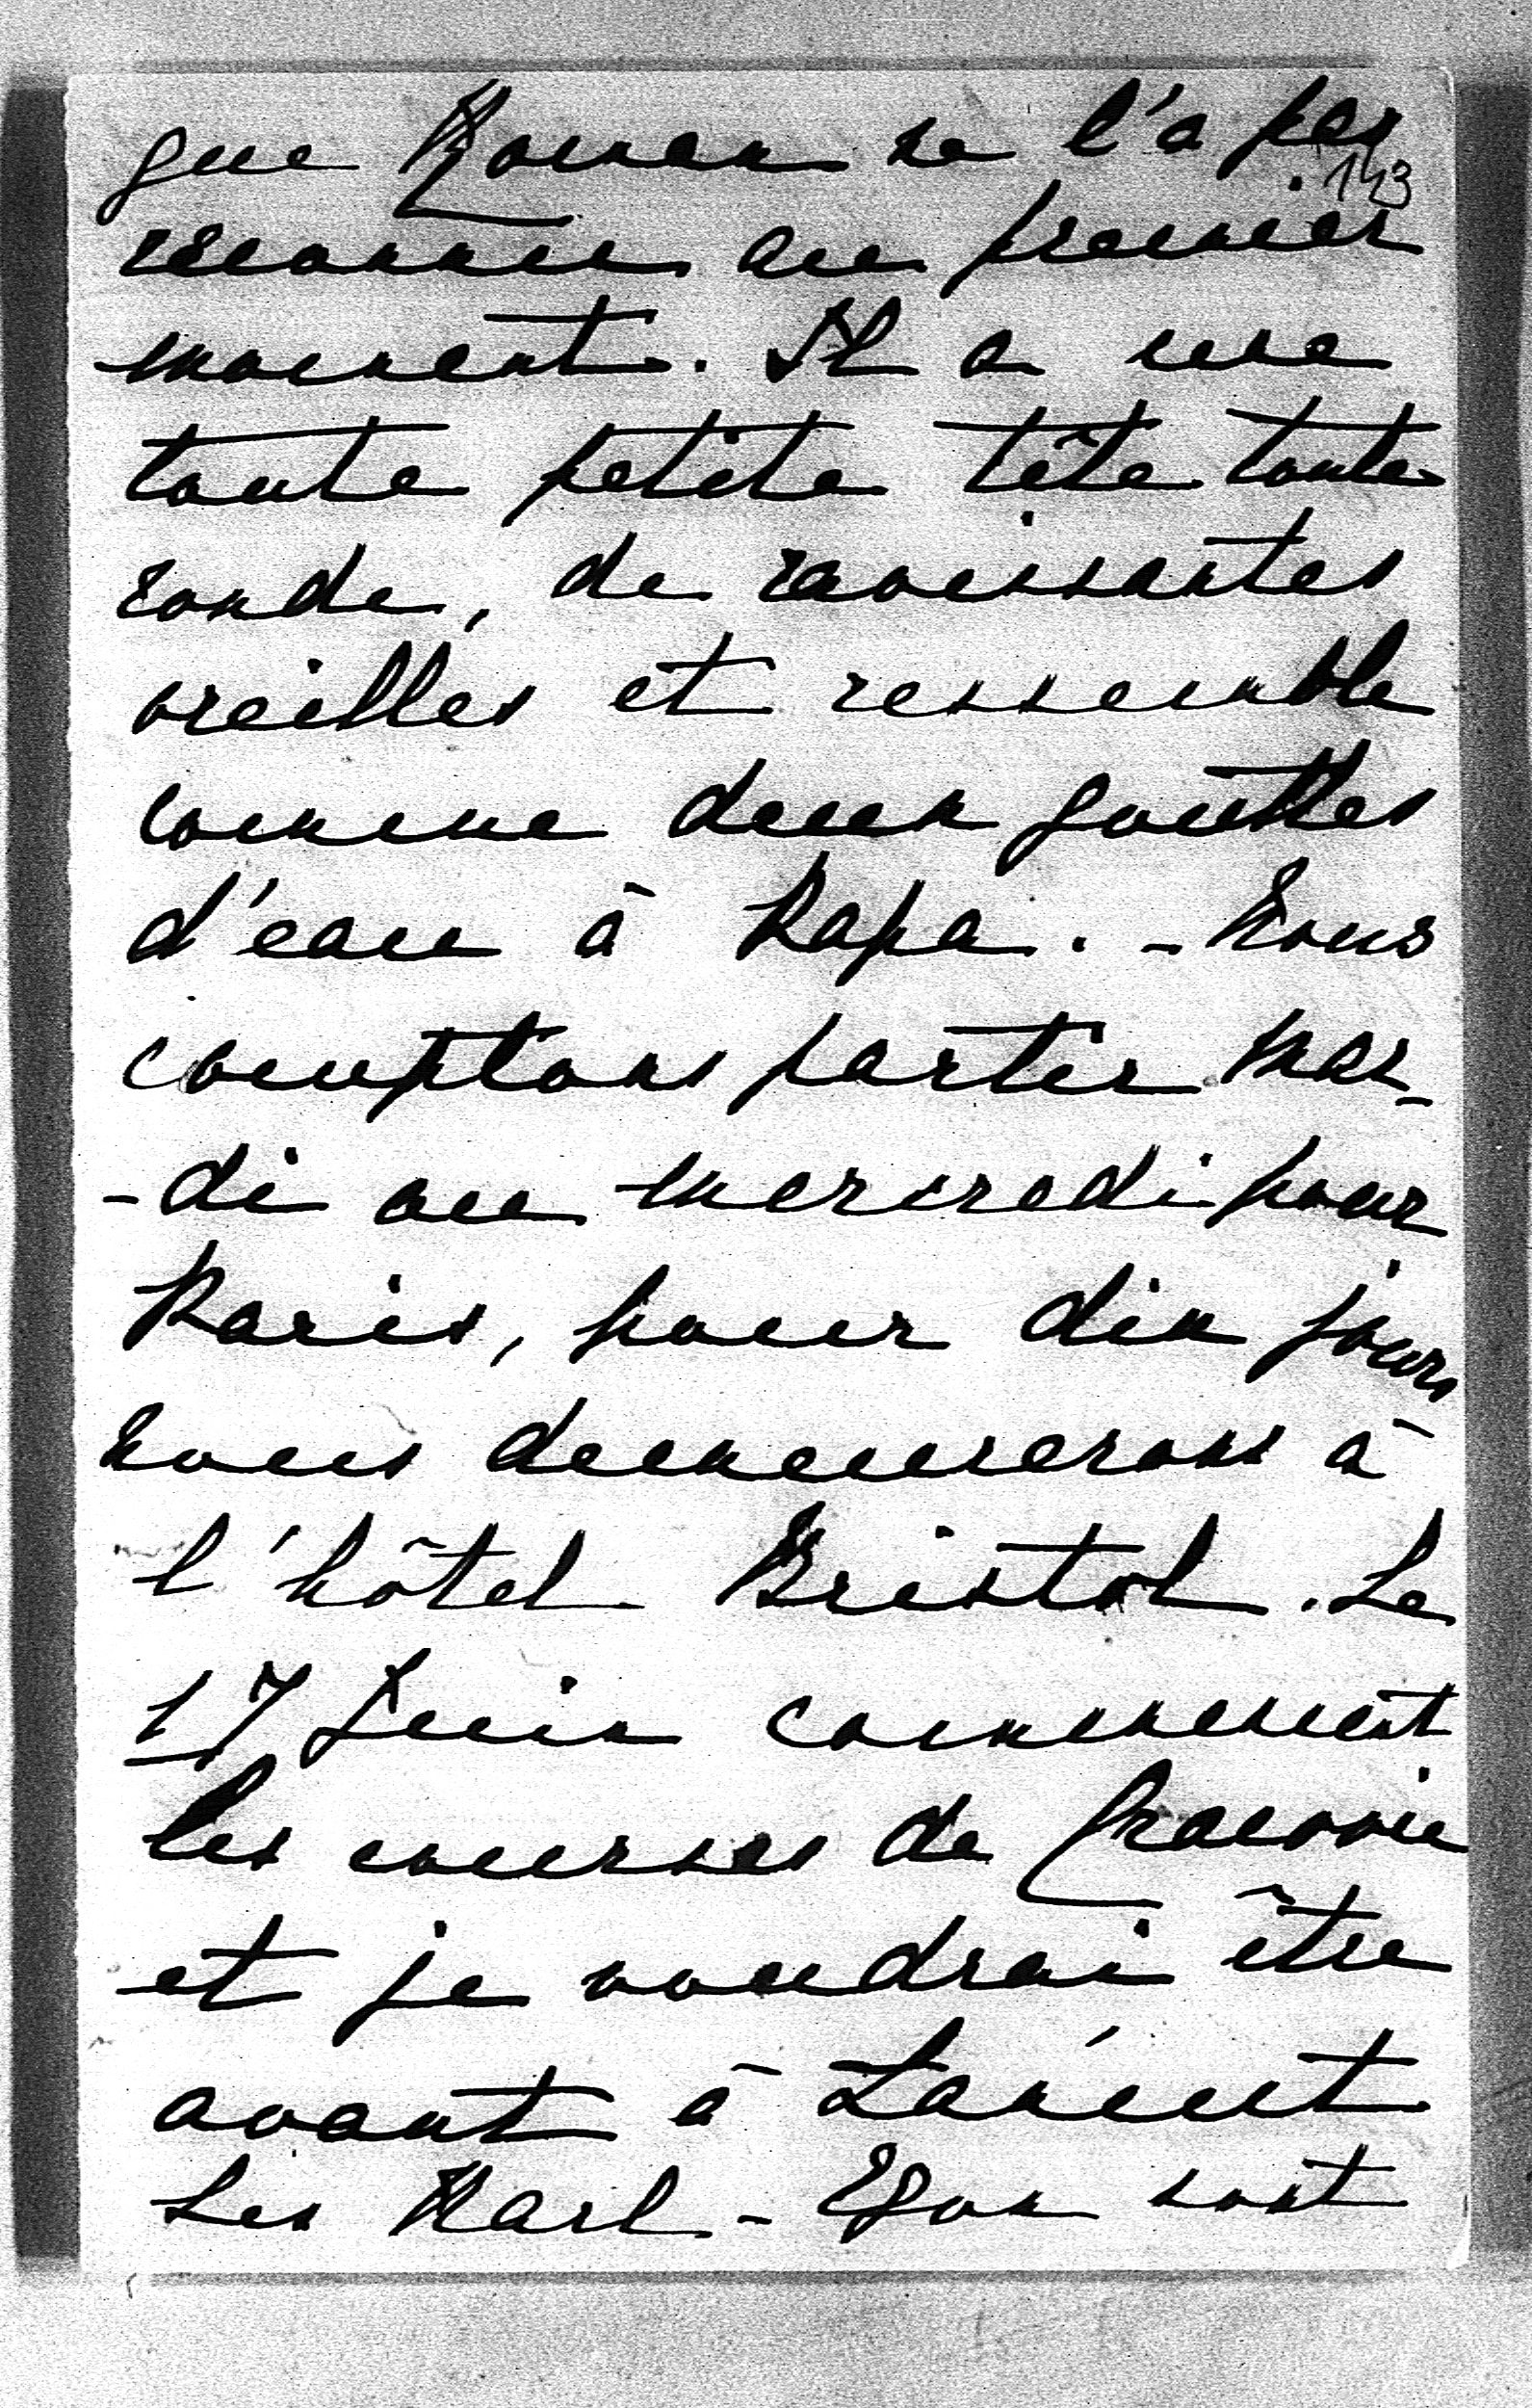 que Roman ne l'a pas
143
reconnue au premier
moment. Il a une
toute petite tête toute
ronde, de ravissantes
oreilles et ressemble
comme deux gouttes
d'eau à Papa. - Nous
comptons partir mar-
-di ou mercredi pour
Paris, pour dix jours
nous demeurerons à
l'hôtel Bristol. Le
17 Juin commencent
les courses de Cracovie
et je voudrai être
avant à Łańcut
Les Karl - Egon sont